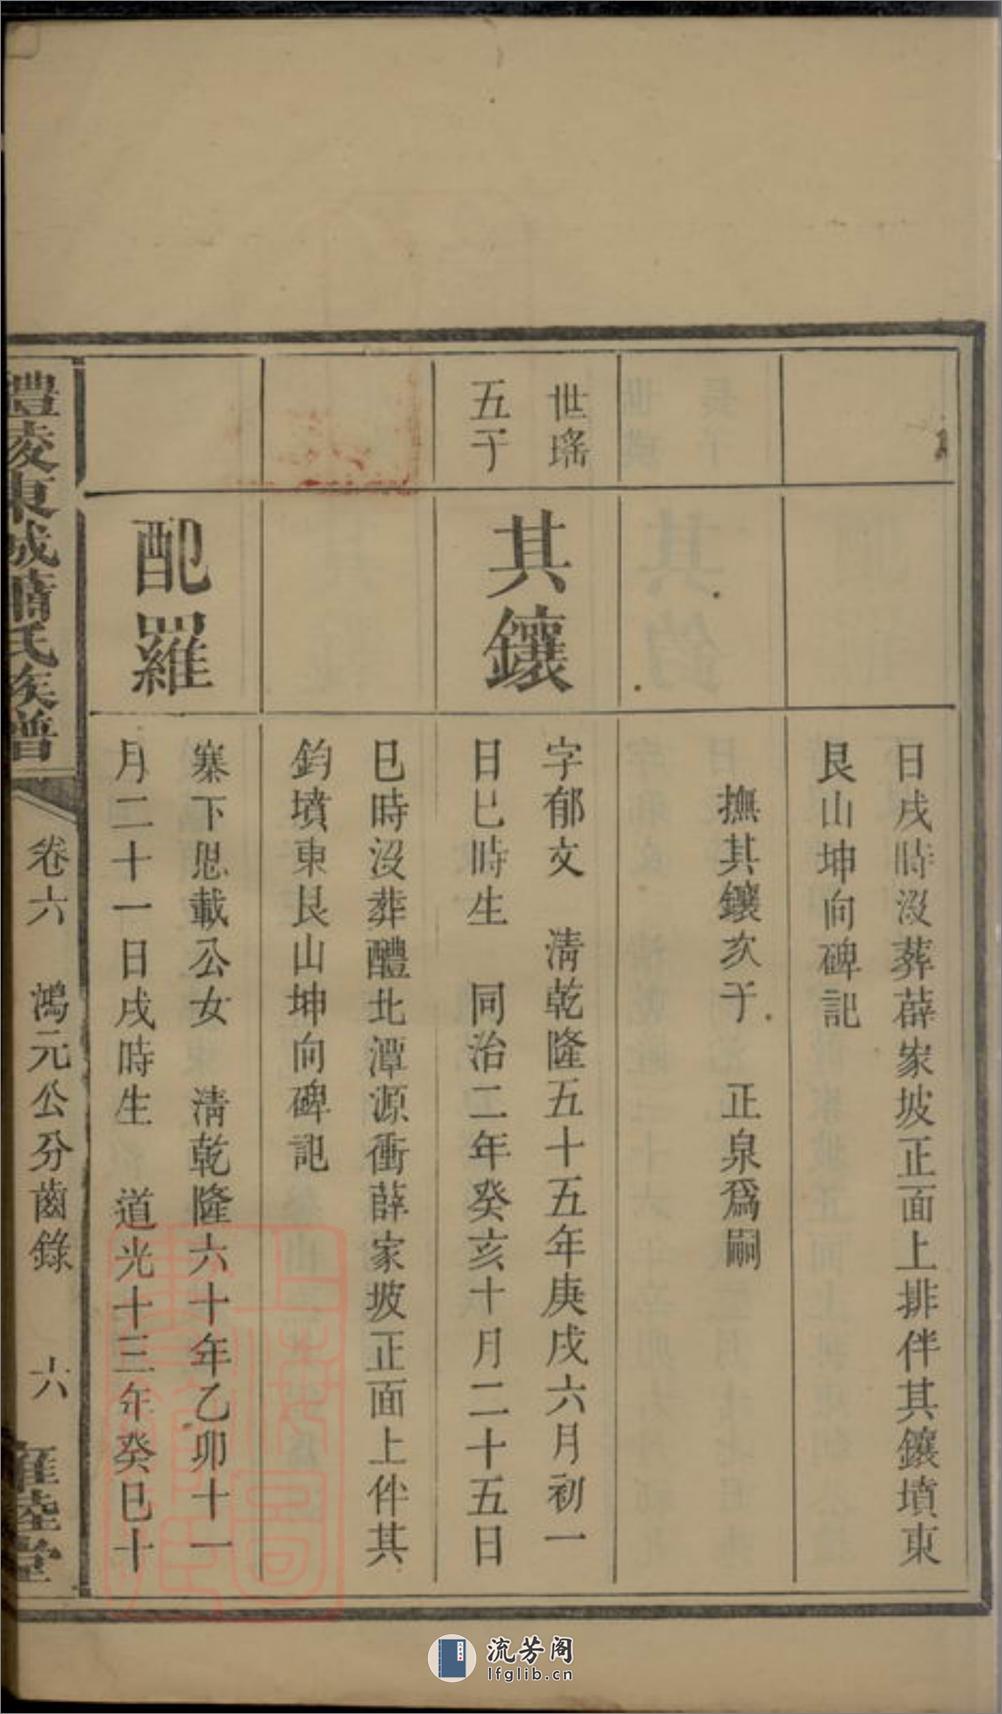 日戌時沒葬薜家坡正面上排伴其鑲墳東
艮山坤向碑記
撫其鑲次子　正泉爲嗣
世瑤
五子
其鑲
字郁文　淸乾隆五十五年庚戌六月初一
日巳時生　同治二年癸亥十月二十五日
巳時沒葬醴北潭源衝薜家坡正面上伴其
鈞墳東艮山坤向碑記
配羅
寨下恩載公女　淸乾隆六十年乙卯十一
月二十一日戌時生　道光十三年癸巳十
醴陵東城蕭氏族譜
卷六　鴻元公分齒錄　十六　睦堂
上海圖書館藏
流芳阁
lfglib.cn